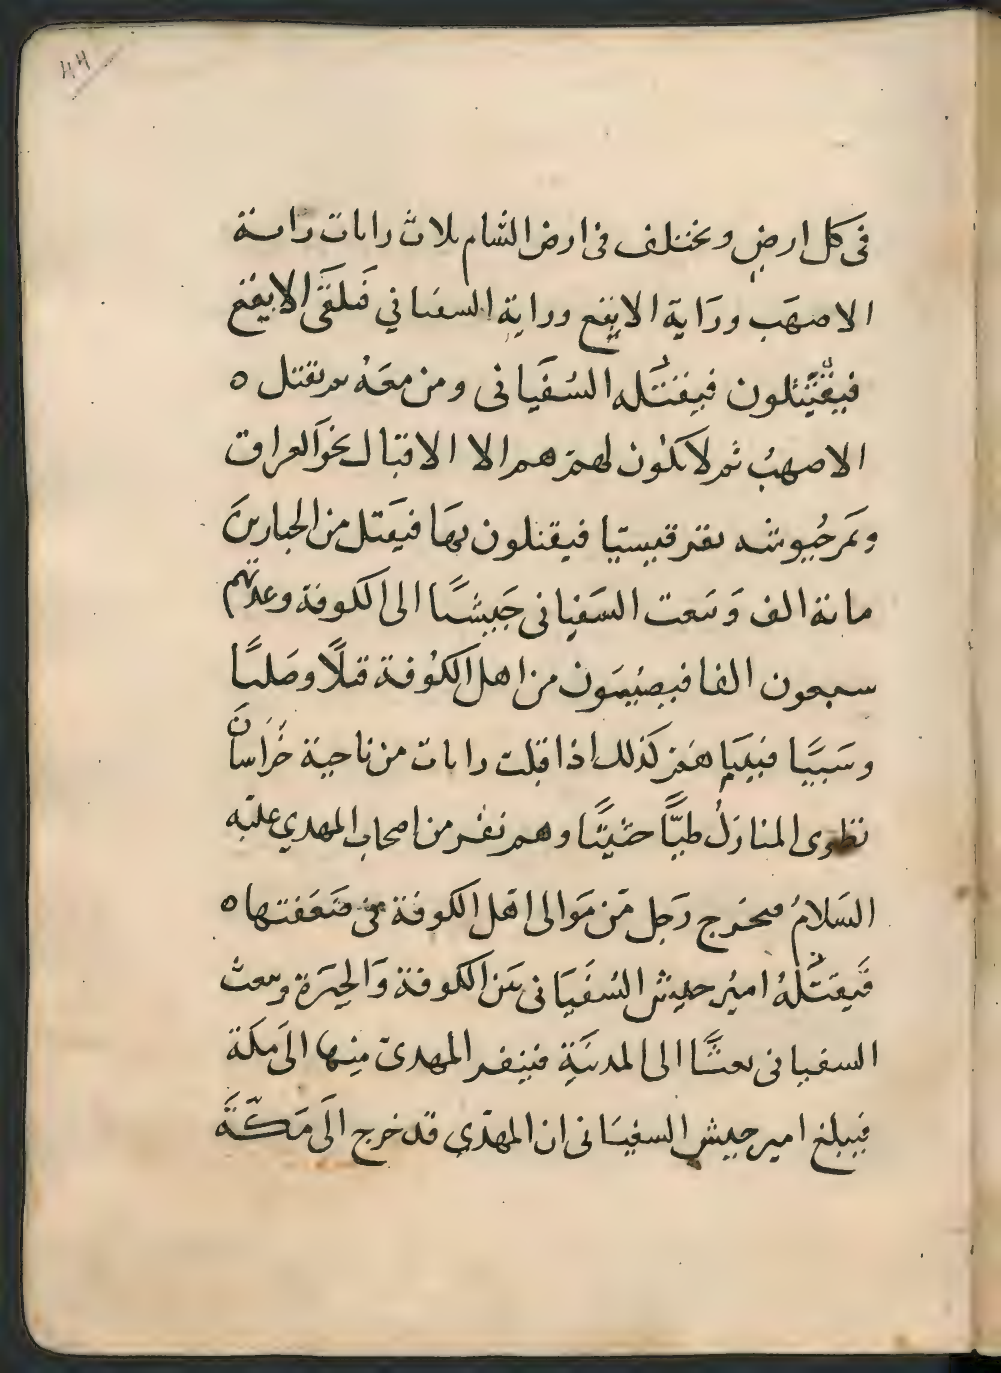 44
في كل ارضٍ ويختلف في ارض الشام ثلاث رايات راية
الاصهَب ورَاية الابقع وراية السفياني فَيلقَى الابقع
فيقتتلون فيقتله السُفيَاني ومن معَهُ ثم يقتل ٥
الاصهبُ ثم لا يكون لهم هم الا الاقبال نحوَ العراق
ويَمر جُيوشه بقرقيسيّا فيقتلون بهَا فيَقتل من الجبارينَ
مائة الف وَيبَعث السَفياني جَيشًا الى الكوفة وعدتهم
سبعون الفا فيصُيبَون من اهل الكوُفة قتلًا وصَلبًا
وسَبيًا فبيَنا هم كذلك اذا قبلت رايات من ناحية خُراسانَ
تطوى المنازلُ طيًّا حثيثًا وهم نفر من اصحاب المهدي عليه
السَلامُ فيخرج رَجل مَن مَوالى اهَل الكوفة في ضَعَفتها ٥
فَيقتَلهُ اميرُ جيش السُفيَاني بيَن الكوفة وَالحِيَرة ويبعث
السفياني بعثًا الى المدنيَةِ فينفر المهدىّ مِنها الىَ مَكة
فيبلغ امير جيش السفيَاني ان المهدّي قد خرج الَى مَكّةَ